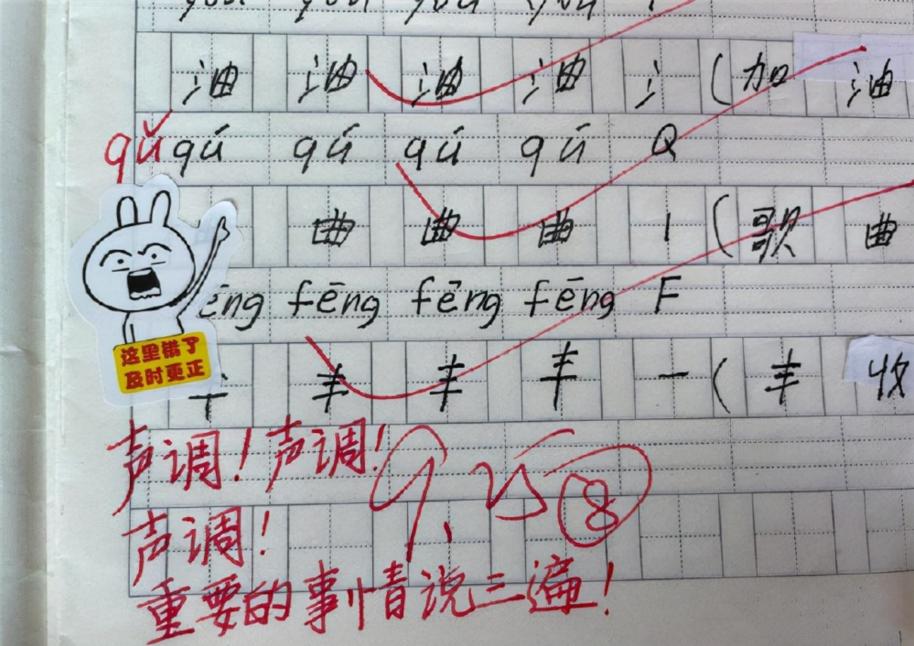 油 油 油 油 氵 (加 油
qǔ qú qú qú qú Q
曲 曲 曲 丨 (歌 曲
ēng fēng fēng fēng F
这里错了
及时更正
丰 丰 丰 一 (丰 收
声调！声调！ 9.25 ⑧
声调！
重要的事情说三遍！